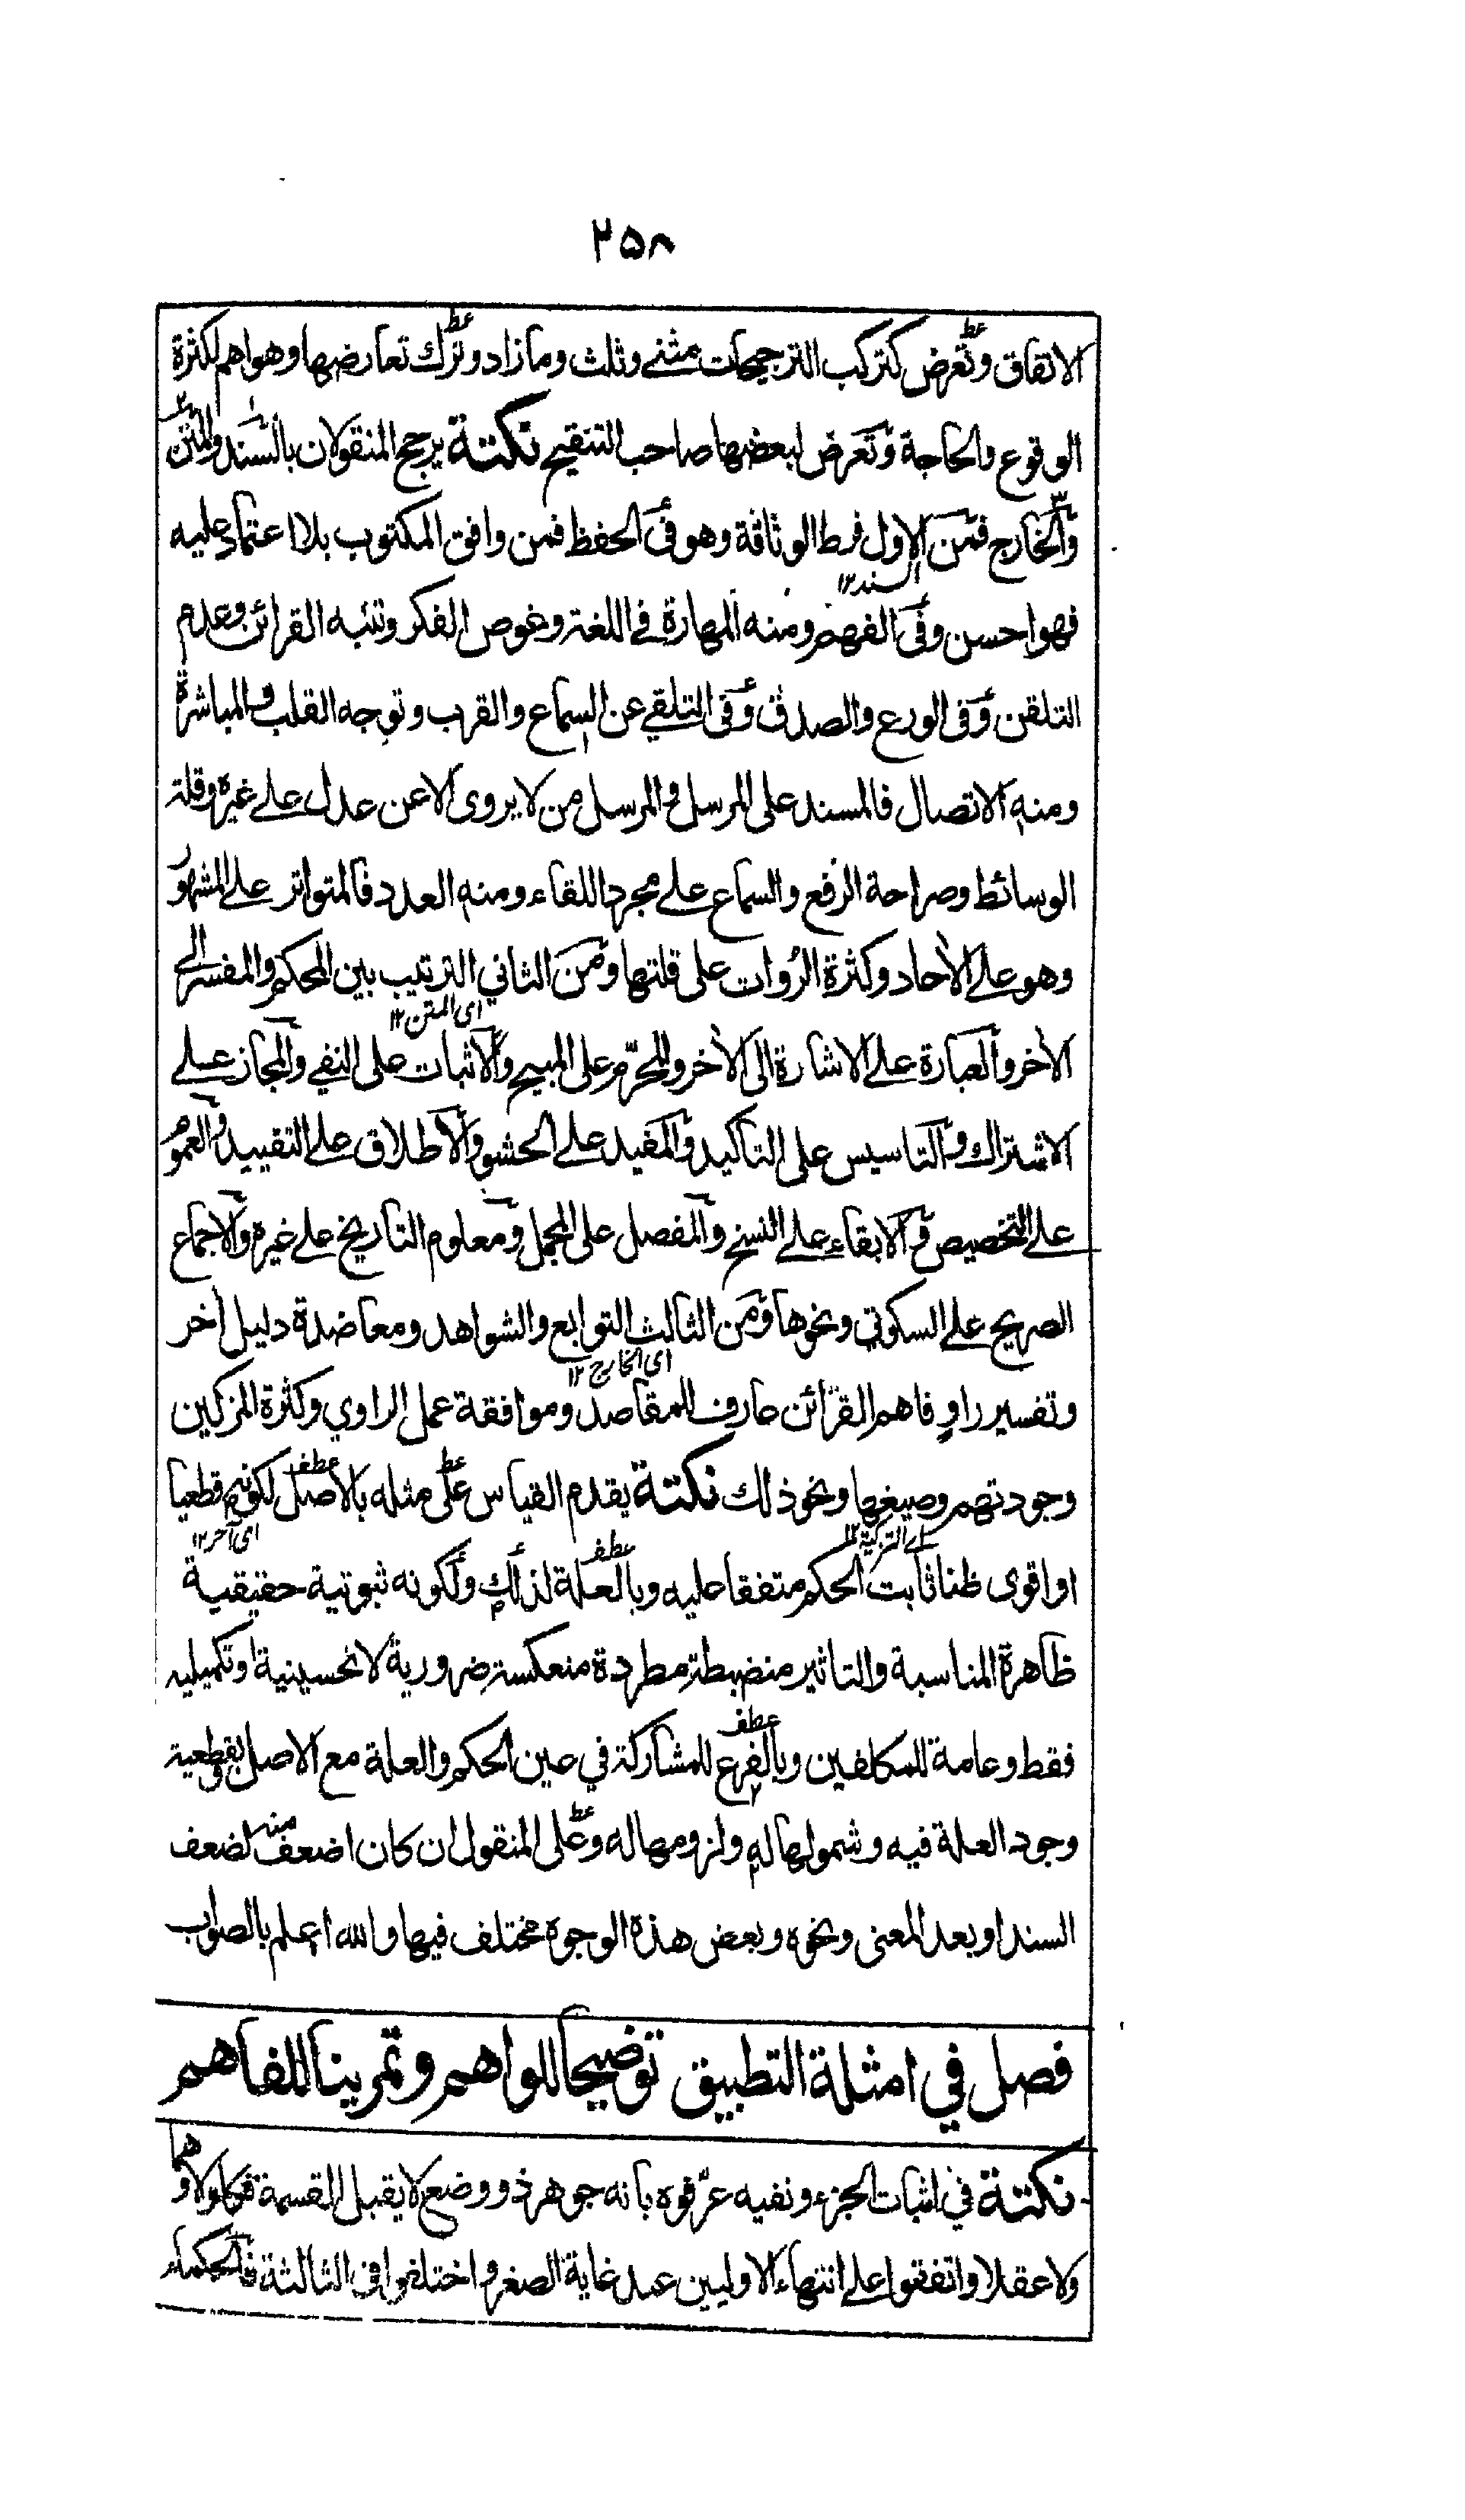 ٢٥٨
الاتفاق وتعرض كتركب الترجيحات مثنے وثلث ومازاد وترك تعارضها وهو اهم لكثرة
الوقوع والحاجة وتعرض لبعضها صاحب التنقيح نكتة يرجح المنقولان بالسند والمتن
والخارج فمن الاول فرط الوثاقة وهو فى الحفظ فمن وافق المكتوب بلا اعتماد عليه
السند١٢
فهو احسن وفى الفهم ومنه المهارة فے اللغة وغوص الفكر وتنبه القرائن وعدم
التلقن وفى الورع والصدق وفى التلقے عن السماع والقرب وتوجه القلب والمباشرة
ومنه الاتصال فالمسند على المرسل والمرسل من لا يروى الا عن عدل علے غيره وقلة
الوسائط وصراحة الرفع والسماع علے مجرد اللقاء ومنه العدد فالمتواتر علے المشهور
وهو علے الأحاد وكثرة الروات على قلتها ومن الثاني الترتيب بين المحكم والمفسر الى
اى المتن١٢
الأخر والعبارة علے الاشارة الى الأخر والمحرّم على المبيح والاثبات على النفے والمجاز علے
الاشتراك والتاسيس على التاكيد والمفيد علے الحشو والاطلاق علے التقييد والعموم
علے التخصيص والابقاء علے النسخ والمفصل على المجمل ومعلوم التاريخ علے غيره والاجماع
الصريح علے السكوتي ونحوها ومن الثالث التوابع والشواهد ومعاضدة دليل أخر
اى الخارج١٢
وتفسير راوٍ فاهم القرائن عارف للمقاصد وموافقة عمل الراوي وكثرة المزكين
وجودتهم وصيغها ونحو ذلك نكتة يقدم القياس على مثله بالاصل لكونه قطعيا
اے التزكية١٢ اى آخر١٢
او اقوى ظنا ثابت الحكم متفقا عليه وبالعلة لذلك ولكونه ثبوتية حقيقية
ظاهرة المناسبة والتاثير منضبطة مطردة منعكسة ضرورية لا تحسينية او تكميليه
فقط وعامة للمكلفين وبالفرع للمشاركة في عين الحكم والعلة مع الاصل بقطعية
وجود العلة فيه وشمولها له ولزومها له وعلى المنقول ان كان اضعف منه لضعف
السند او بعد المعنى ونحوه وبعض هذه الوجوه مختلف فيها والله اعلم بالصواب
فصل في امثلة التطبيق توضيحا للواهم وتمرينا للفاهم
نكتة في اثبات الجزء ونفيه عرّفوه بانه جوهر ذو وضع لا يقبل القسمة فكا ولا وهما
ولا عقلا واتفقوا علے انتهاء الاوليين عند غاية الصغر واختلفوا فى الثالثة فالحكماء